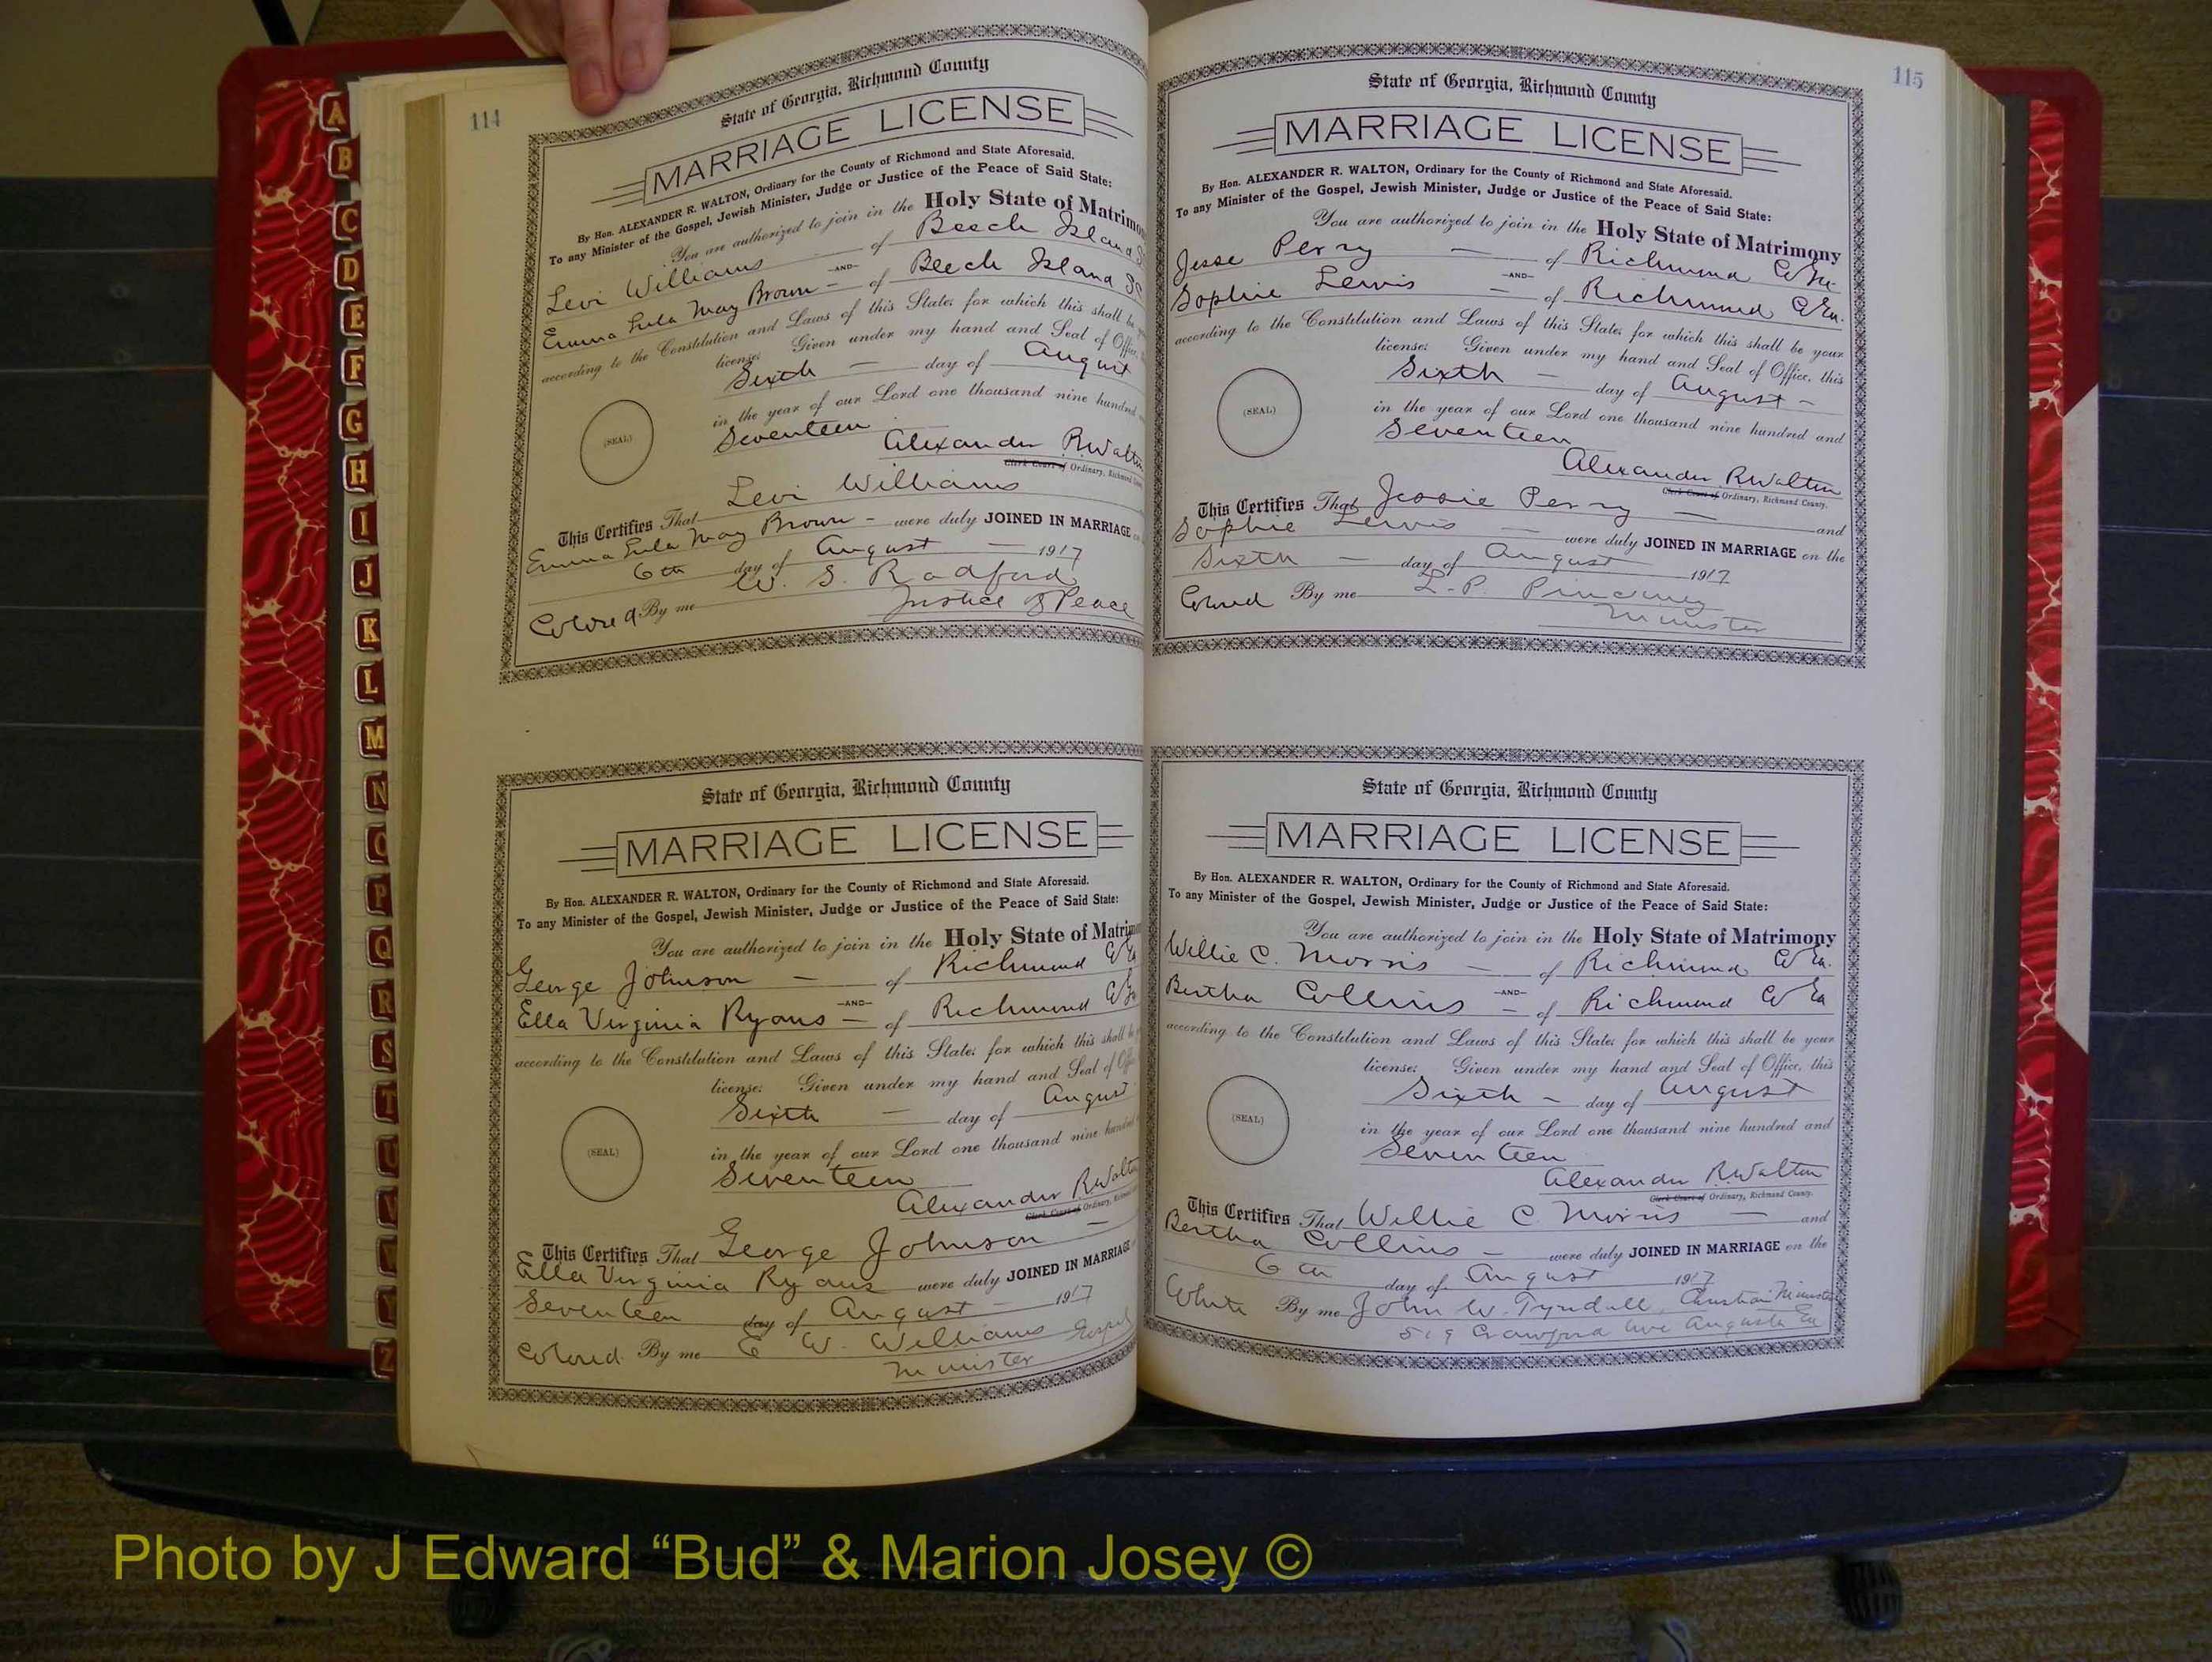 A
B
C
D
E
F
G
H
I
J
K
L
M
N
O
P
Q
R
S
T
U
V
Y
Z
114
State of Georgia, Richmond County
MARRIAGE LICENSE
By Hon. ALEXANDER R. WALTON, Ordinary for the County of Richmond and State Aforesaid.
To any Minister of the Gospel, Jewish Minister, Judge or Justice of the Peace of Said State:
You are authorized to join in the Holy State of Matrimo
Levi Williams of Beech Island S
—AND—
Emma Lula May Brown – of Beech Island SC
according to the Constitution and Laws of this State; for which this shall be
license: Given under my hand and Seal of Office,
Sixth — day of August
in the year of our Lord one thousand nine hundred
Seventeen
(SEAL)
Alexander R Walton
Clerk Court of Ordinary, Richmond
This Certifies That Levi Williams
Emma Lula May Brown – were duly JOINED IN MARRIAGE
6th day of August — 1917
Colored By me W. S. Radford
Justice of Peace
State of Georgia, Richmond County
MARRIAGE LICENSE
By Hon. ALEXANDER R. WALTON, Ordinary for the County of Richmond and State Aforesaid.
To any Minister of the Gospel, Jewish Minister, Judge or Justice of the Peace of Said State:
You are authorized to join in the Holy State of Matrim
George Johnson — of Richmond Co Ga
—AND—
Ella Virginia Ryans — of Richmond Co Ga
according to the Constitution and Laws of this State; for which this shall be
license: Given under my hand and Seal of Offi
Sixth — day of August
in the year of our Lord one thousand nine hundred
Seventeen
(SEAL)
Alexander R Walto
Clerk Court of Ordinary,
This Certifies That George Johnson —
Ella Virginia Ryans were duly JOINED IN MARRIAGE
Seventeen day of August — 1917
Colored By me E W. Williams Gospel
Minister
115
State of Georgia, Richmond County
MARRIAGE LICENSE
By Hon. ALEXANDER R. WALTON, Ordinary for the County of Richmond and State Aforesaid.
To any Minister of the Gospel, Jewish Minister, Judge or Justice of the Peace of Said State:
You are authorized to join in the Holy State of Matrimony
Jesse Perry — of Richmond Co Ga
—AND—
Sophie Lewis — of Richmond C Ga.
according to the Constitution and Laws of this State; for which this shall be your
license: Given under my hand and Seal of Office, this
Sixth — day of August –
in the year of our Lord one thousand nine hundred and
Seventeen
(SEAL)
Alexander R Walton
Clerk Court of Ordinary, Richmond County.
This Certifies That Jessie Perry — and
Sophie Lewis — were duly JOINED IN MARRIAGE on the
Sixth — day of August 1917
Colored By me L. P. Pinckney
Minister
State of Georgia, Richmond County
MARRIAGE LICENSE
By Hon. ALEXANDER R. WALTON, Ordinary for the County of Richmond and State Aforesaid.
To any Minister of the Gospel, Jewish Minister, Judge or Justice of the Peace of Said State:
You are authorized to join in the Holy State of Matrimony
Willie C. Morris — of Richmond Co Ga.
—AND—
Bertha Collins — of Richmond Co Ga
according to the Constitution and Laws of this State; for which this shall be your
license: Given under my hand and Seal of Office, this
Sixth – day of August
in the year of our Lord one thousand nine hundred and
Seventeen
(SEAL)
Alexander R Walton
Clerk Court of Ordinary, Richmond County.
This Certifies That Willie C. Morris — and
Bertha Collins — were duly JOINED IN MARRIAGE on the
6th day of August 1917
White By me John W. Tyndall, Christian Minister
519 Crawford Ave Augusta Ga
Photo by J Edward “Bud” & Marion Josey ©